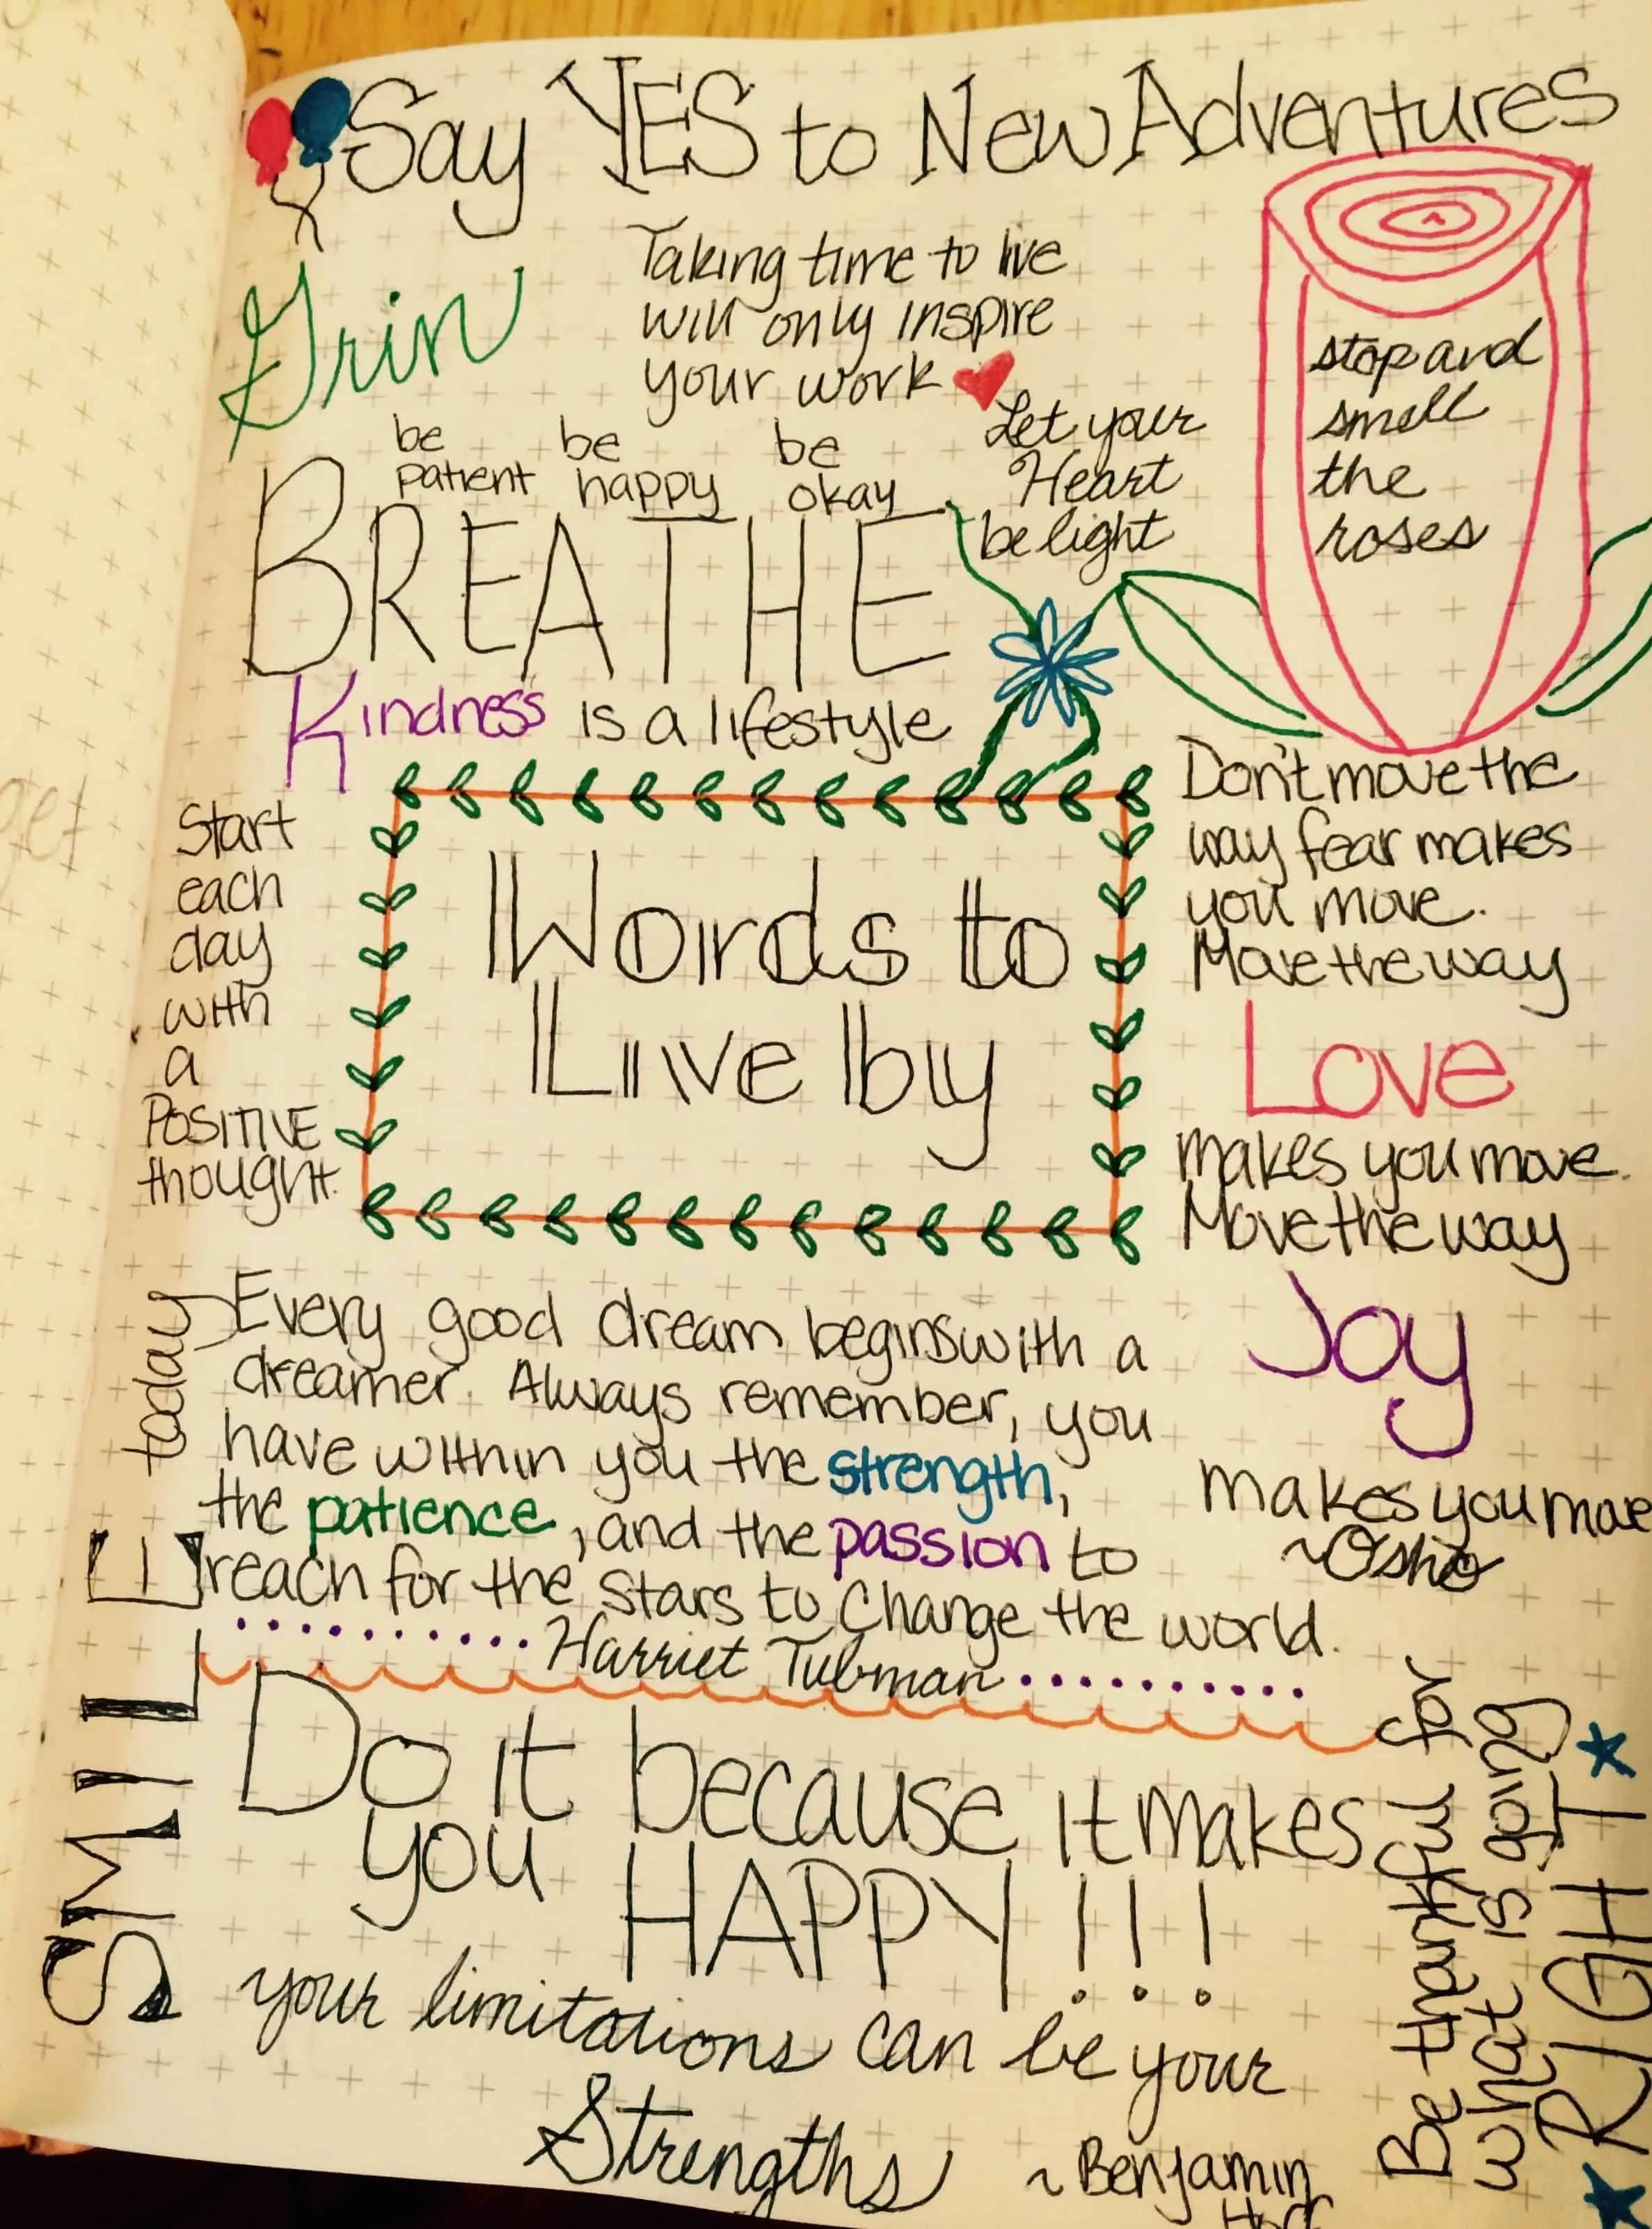 Say YES to New Adventures
Grin
Taking time to live
will only inspire
your work
stop and
smell
the
roses
Let your
Heart
be light
be
patient
be
happy
be
okay
BREATHE
Kindness is a lifestyle
Start
each
day
with
a
POSITIVE
thought.
Words to
Live by
Don't move the
way fear makes
you move.
Move the way
Love
makes you move.
Move the way
Joy
makes you move
~Osho
Every good dream begins with a
dreamer. Always remember, you
have within you the strength,
the patience, and the passion to
reach for the stars to change the world.
Harriet Tubman
SMILE today
Do it because it makes
you HAPPY!!!
your limitations can be your
Strengths
~Benjamin
Be thankful for
what is going
RIGHT